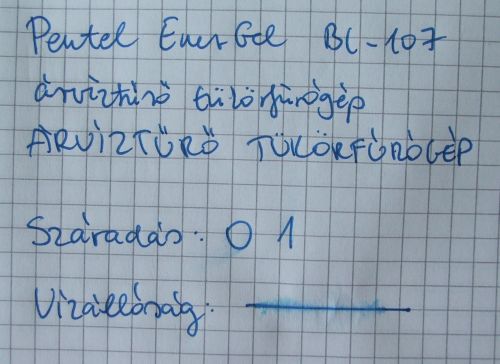 Pentel EnerGel BL-107
árvíztűrő tükörfúrógép
ÁRVÍZTŰRŐ TÜKÖRFÚRÓGÉP
Száradás: 0 1
Vízállóság: